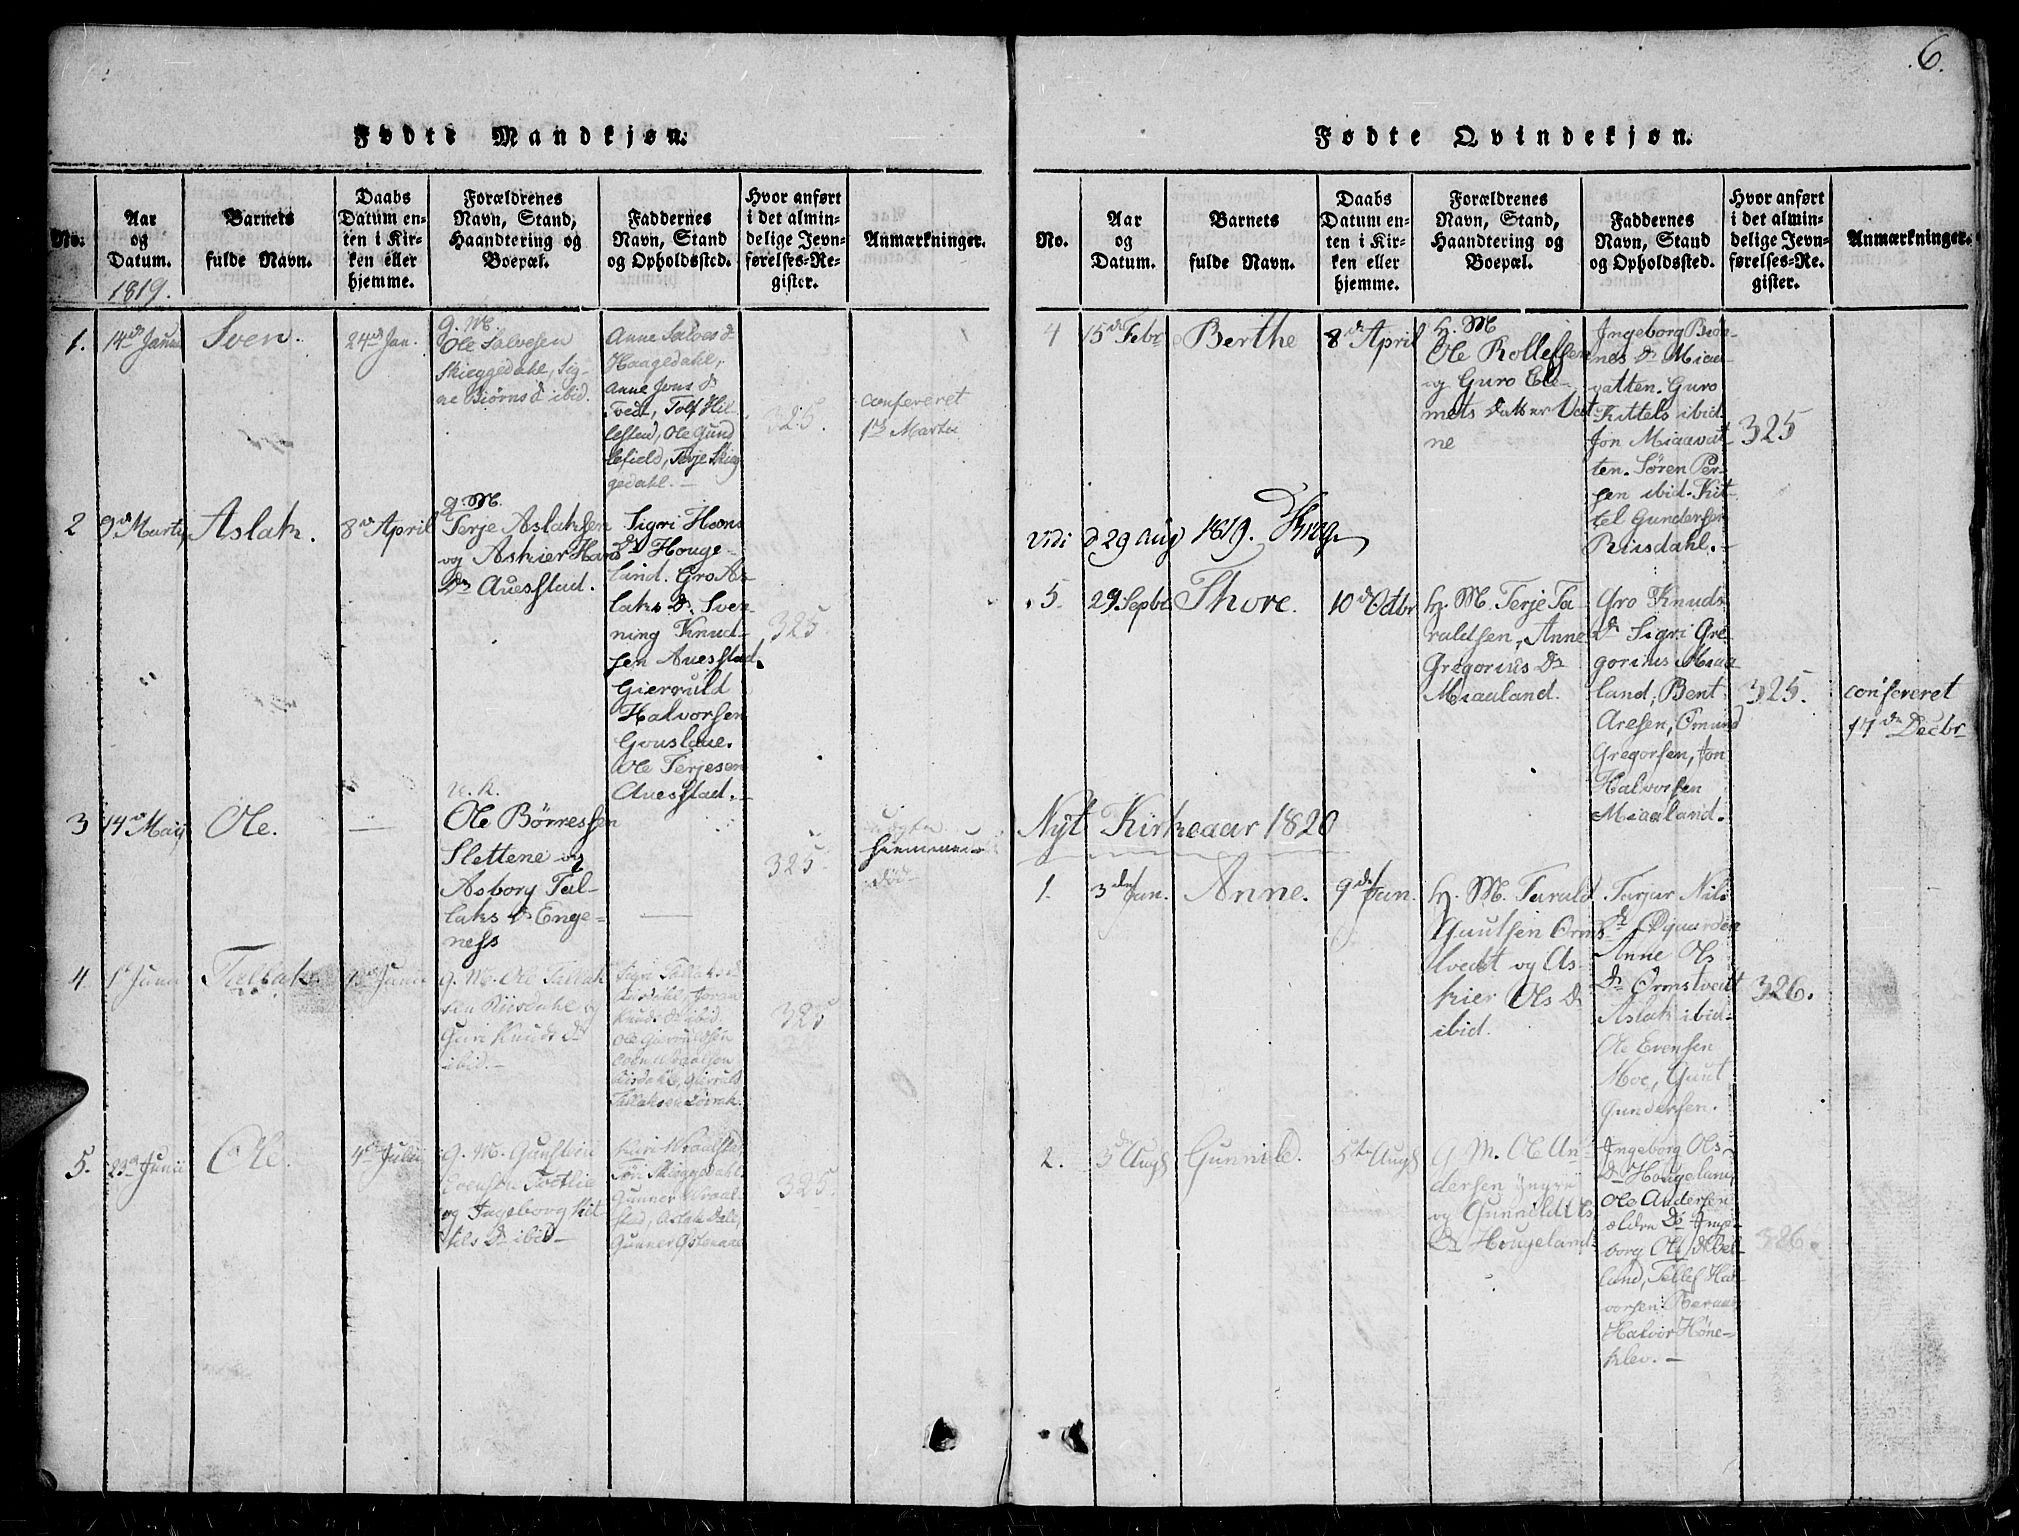 6.
Fødte Mandkjøn.
No.
Aar
og
Datum.
1819.
Barnets
fulde Navn.
Daabs
Datum en-
ten i Kir-
ken eller
hjemme.
Forældrenes
Navn, Stand,
Haandtering og
Boepæl.
Faddernes
Navn, Stand
og Opholdssted.
Hvor anført
i det almin-
delige Jevn-
førelses-Re-
gister.
Anmærkninger.
1.
14de
Sven.
24de Jan.
g. M
Ole Salvesen
Skieggedahl, Sig-
ne Biørns d ibid.
Anne Salves d
Haagedahl,
Anne Jons d
Tvedt, Tolf Hil-
lestad, Ole Gund
Terje Skieg
gedahl.
325.
confereret
2
9de Marty
Aslak.
8de April
g. M.
Terje Aslaksen
og Askier
Dr Auesstad.
Sigri
Dr Houge-
land. Gro As-
laks Dr. Sven-
ning Knud-
sen Auesstad.
Gierruld
Halvorsen
Ole Terjesen
Auesstad.
325.
3
14de Maij
Ole.
Ole Børressen
Slettene og
Asborg Tal-
laks Dr Enge-
ness
325
hiemme
død
4.
Junii
Tallak.
Junii
g. M. Ole Tallak
sen Riisdahl og
Guri Knuds Dr
ibid.
Sigri Tallaks d
Riisdahl, Joran
Knuds d ibid
Ole Gierruldsen
Riisdahl, Gierruld
Tallaksen
325
5.
23de Junii
Ole.
4de Julii
g. M.
og Ingeborg Kit-
tels Dr ibid
Kari
Skieggedahl
Gunner
Aslak Dale,
Gunner
325.
Fødte Qvindekjøn.
No.
Aar
og
Datum.
Barnets
fulde Navn.
Daabs
Datum en-
ten i Kir-
ken eller
hjemme.
Forældrenes
Navn, Stand,
Haandtering og
Boepæl.
Faddernes
Navn, Stand
og Opholdssted.
Hvor anført
i det almin-
delige Jevn-
førelses-Re-
gister.
Anmærkninger.
4
15de Febr
Berthe
8de April
h. M
Ole Rollefsen
og Guro Cle-
mets datter Vat
ne
Ingeborg Biør-
nes Dr Miaa-
vatten. Guro
Kittels ibid
Jon Miaavat
ten. Søren Per-
sen ibid. Kit-
tel Gundersen
Riisdahl.
325
Vidi d 29 Aug 1819. Krog
5.
29 Septbr
Thore.
10de Octbr
h. M. Terje Ta-
raldsen, Anne
Gregorius Dr
Miaaland.
Gro Knuds
Dr Sigri Gre-
gorius Miaa
land, Bent
Aresen, Omund
Gregorsen, Jon
Halvorsen
Miaaland.
325.
confereret
17de Decbr
Nyt Kirkeaar 1820
1.
3die Jan.
Anne.
9de Jan.
h. M. Tarald
Gautsen Orms
tvedt og As-
kier Ols Dr
ibid.
Turjur Nils
Dr Øygarden
Anne Ols
Dr Ormstvedt
Aslak ibid
Ole Evensen
Moe, Gunt
Gundersen.
326.
2.
Augs
Gunnild.
5te Augs
G. M. Ole An-
dersen yngre
og Gunnild
Dr Hougeland
Ingeborg Ols
Dr Hougeland,
Ole Andersen
ældre Dr Inge-
borg Ols d Bel-
land, Tellef Hal-
vorsen
Halvor Høne-
klev.
326.